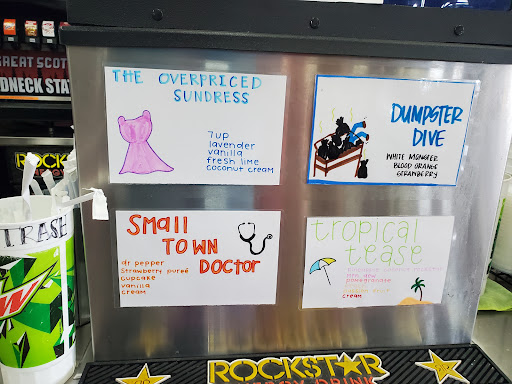 TRASH
GREAT SCOT
REDNECK STA
ROCKST
THE OVERPRICED
SUNDRESS
7up
lavender
vanilla
fresh lime
coconut cream
DUMPSTER
DIVE
WHITE MONSTER
BLOOD ORANGE
STRAWBERRY
Small
TOWN
DOCTOR
dr pepper
Strawberry pureé
cupcake
vanilla
cream
tropical
tease
pomegranate
cream
TRASH
ROCKSTAR
ENERGY DRINK